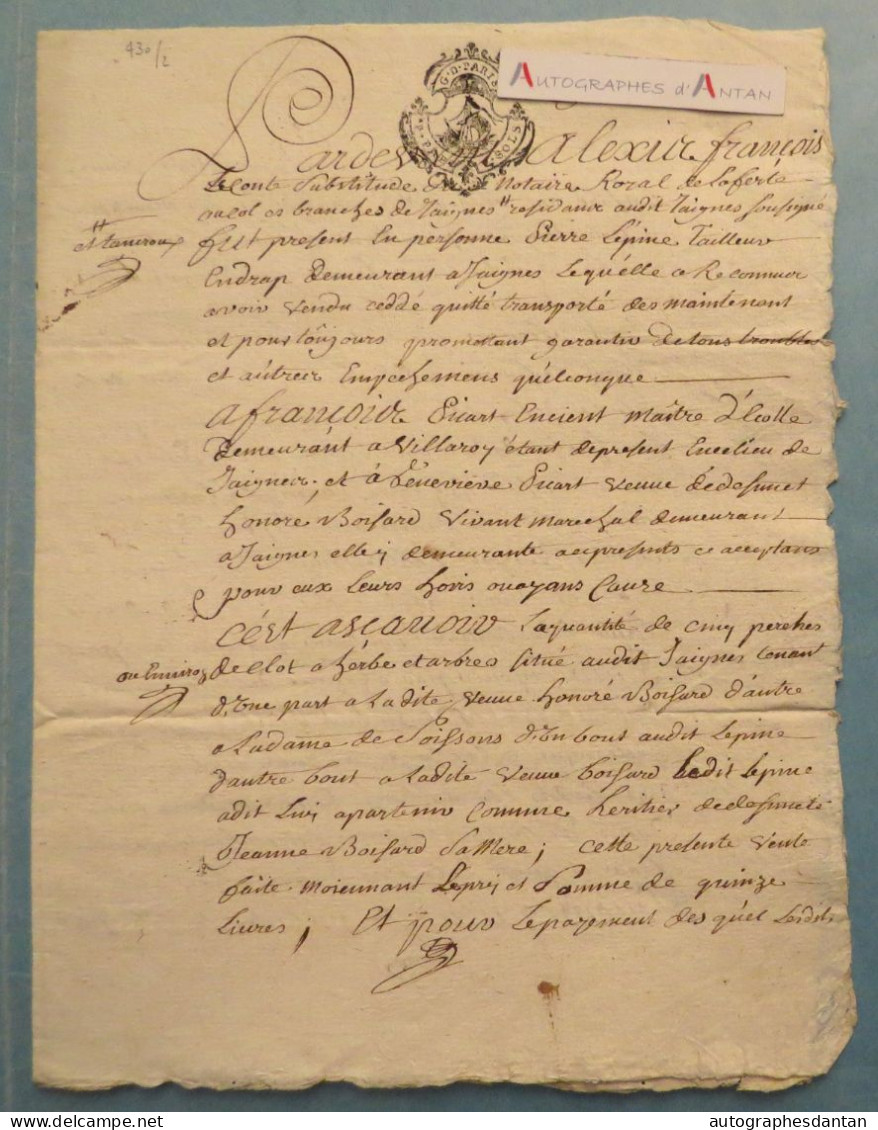 430/2
G·D·PARIS
SOLS
AUTOGRAPHES d'ANTAN
Alexis françois
Leconte Substitude Notaire Royal de Laferté
aucol es branches de Jaignes residant audit Jaignes sousigné
fut present En personne Pierre Lépine Tailleur
Endrap demeurant a Jaignes Lequélle a Reconnu
avoir vendu ceddé quitté transporté des maintenant
et pour toûjours promettant garantir de tous troubles
et autres Empechemens quélconque
A françois Picart Encient Maître d'Ecolle
Demeurant a Villaroy étant depresent Encelieu de
Jaignes, et à Génevieve Picart veuve de defunct
honoré Boisard vivant marechal demeurant
a Jaignes elle y demeurante acepresents ce acceptans
pour eux Leurs hoirs ou ayans Cause
C'ést ascavoir Laquantité de cinq perches
ou Environ
de clot a hérbe et arbres situé audit Jaignes tenant
d'une part a Ladite veuve honoré Boisard d'autre
a Ladame de Soissons d'un bout audit Lepine
d'autre bout a Ladite veuve boisard Ledit Lepine
adit Luy apartenir comme heritier dedefuncte
Jeanne Boisard Sa Mere; cette presente vente
faite moiennant Leprix et Somme de quinze
Livres; Et pour Lepayement des quél Lesdits
delcampe.net
autographesdantan